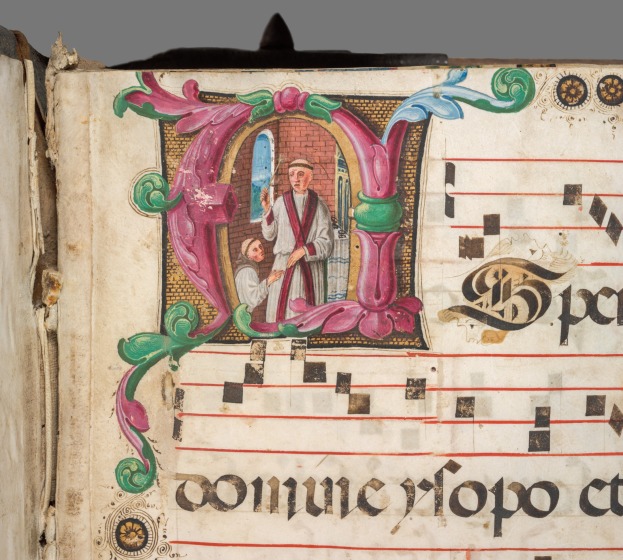 ASper
domine ysopo et